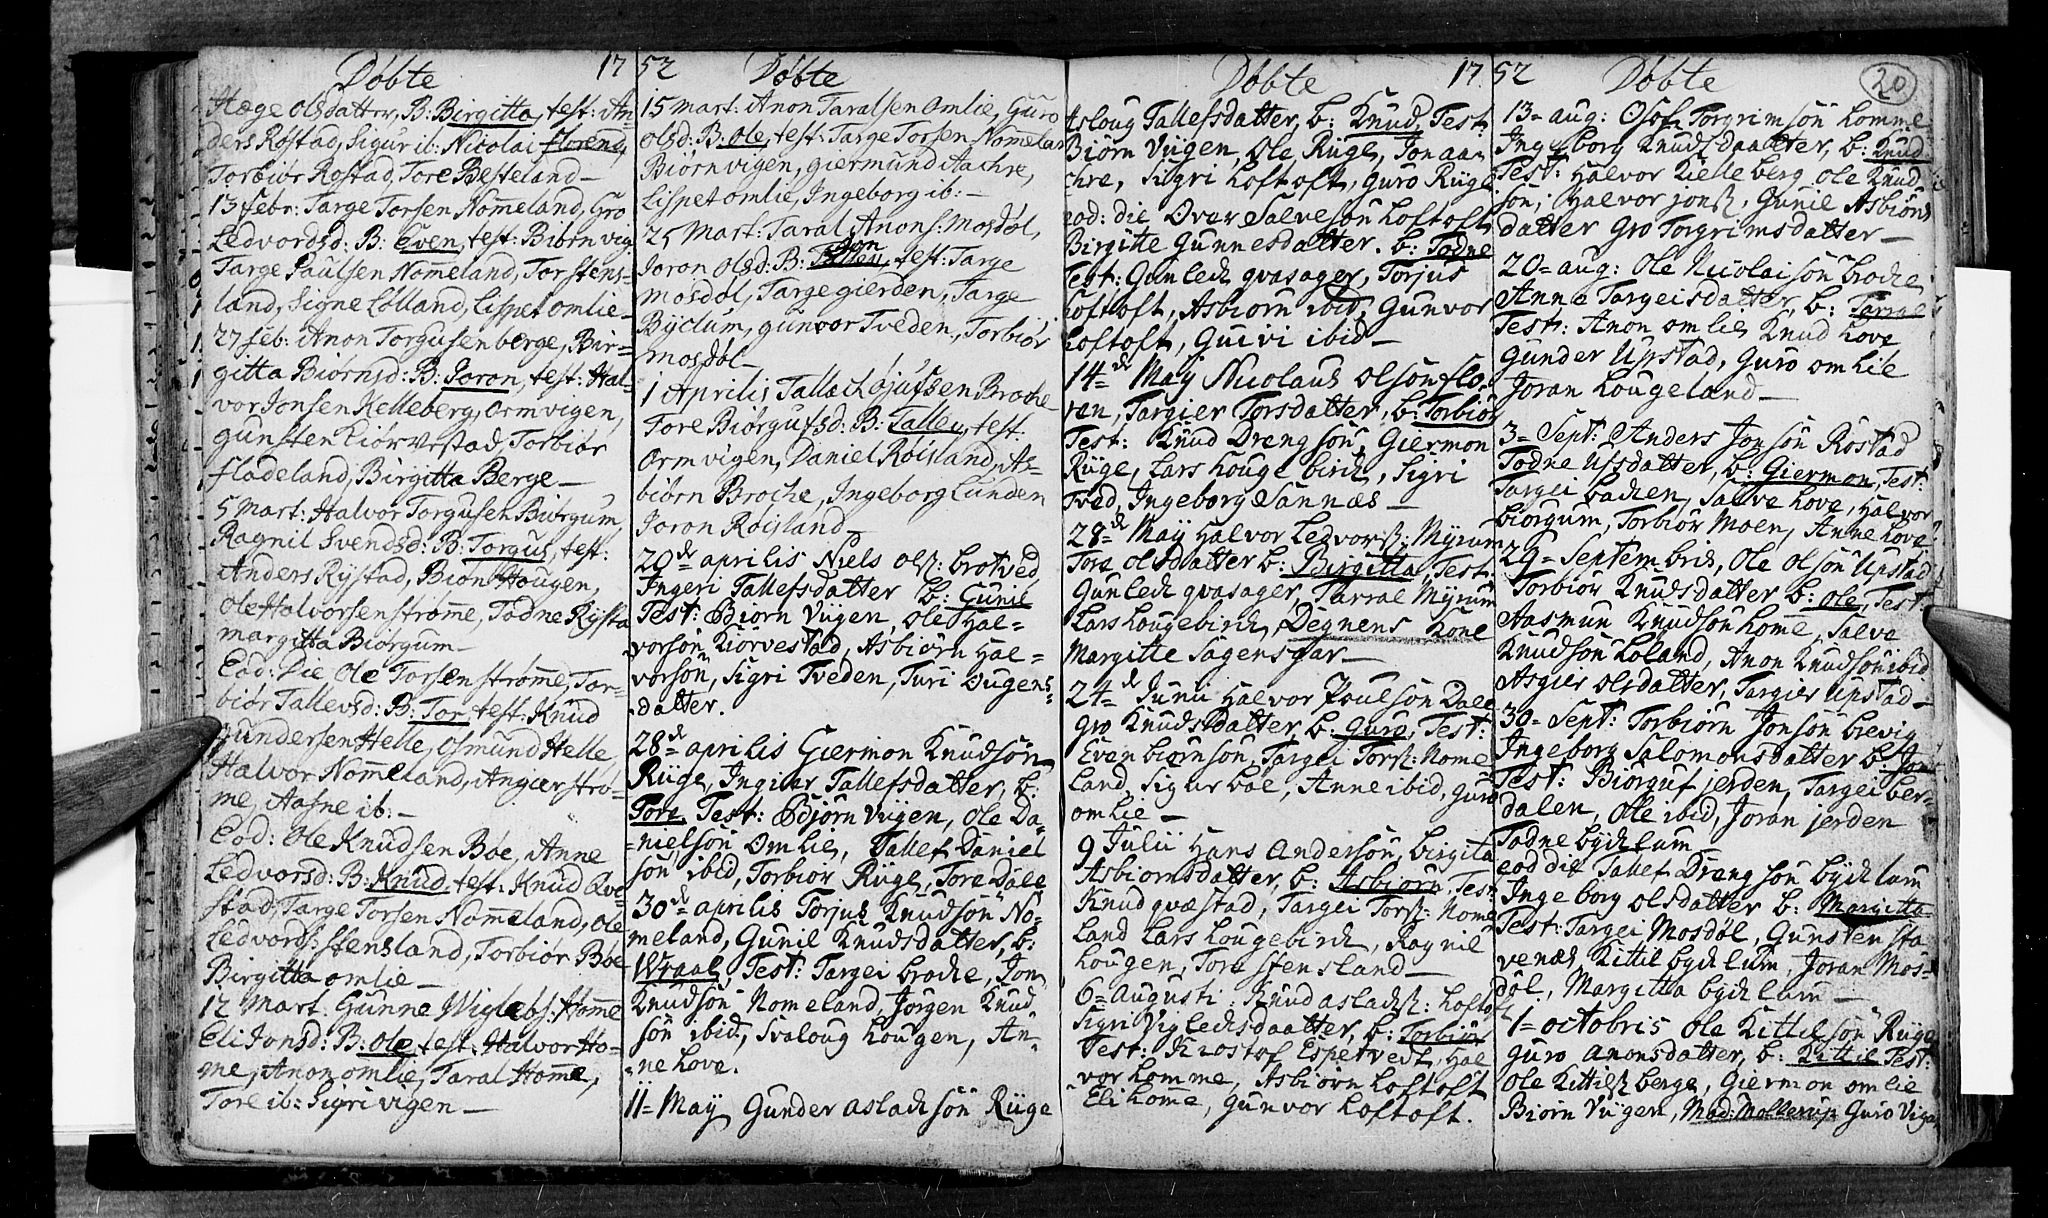 Døbte 17
Hæge olsdatter, B: Birgitta, test: An-
ders Rostad, Sigur ib: Nicolai florens,
Torbiør Rostad, Tore Besteland –
13 febr: Targe Torsen Nomeland, Gro
Ledvordsd: B: Even, test: Biørn vig:
Targe Paulsen Nomeland, Tor stens-
land, Signe Lølland, Lispet omlie –
27 feb: Anon Torgusen berge, Bir-
gitta Biørnsd: B: Joron, test: Hal-
vor Jonsen Kelleberg, Orm vigen,
gunsten Kiørvestad, Torbiør
fladeland, Birgitta Berge –
5 Mart: Halvor Torgusen Biørgum,
Ragnil Svendsd: B: Torgus, test:
Anders Rystad, Biørn Hougen,
Ole Halvorsen strømme, Todne Rysta
margitta Biørgum –
Eod: Die Ole Torsen strømme, Tor-
biør Tallevsd: B: Tor test: Knud
gundersen Helle, Osmund Helle,
Halvor Nomeland, Angier strø-
me, Aasne ib: –
Eod: Ole Knudsen Bøe, Anne
Ledvorsd: B: Knud test: Knud Qve-
stad, Targe Torsen Nomeland, Ole
Ledvords: stensland, Torbiør Bøe
Birgitta omlie –
12 Mart: Gunne Viglebs: Homme
Eli Jonsd: B: Ole test: Halvor Ho-
me, Anon omlie, Taral Homme,
Tore ib: Sigri vigen –
52 Døbte
15 mart: Anon Taralsen Omlie, Guro
olsd: B: ole, test: Targe Torsen Nomelan
Biørn vigen, giermund Aachre,
Lispet omlie, Ingeborg ib: –
25 Mart: Taral Anons: Mosdøl,
Joron olsd: B: Anon, test: Targe
Mosdøl, Targe gierden, Targe
Byclum, gunvor Tveden, Torbiør
Mosdøl –
1 Aprilis Tallach Djufsen Broche
Tore Biørgufsd: B: Tallev, test:
Orm vigen, Daniel Røisland, As-
biørn Broche, Ingeborg Lunden
Joron Røisland –
20de aprilis Niels ols: brotved
Ingeri Tallefsdatter b: Gunil
Test: Biørn Viigen, Ole Hal-
vorsøn Kiørvestad, Asbiørn Hal-
vorsøn, Sigri Tveden, Turi Ougens-
datter.
28de aprilis Giermon Knudsøn
Riige, Ingier Tallefsdatter, b:
Tore, Test: Bjørn Viigen, Ole Da-
nielsøn Omlie, Tallef Daniel
søn ibid, Torbiør Riige, Tore Dale
30de aprilis Torjus Knudsøn No-
meland, Gunil Knudsdatter, b:
Wraal, Test: Targei broche, Jon
Knudsøn Nomeland, Jørgen Knud
søn ibid, Svaloug hougen, An-
ne hove.
11= Maÿ Gunder aslachsøn Riige
Døbte 17
Asloug Tallefsdatter, b: Knud, Test:
Biørn Viigen, Ole Riige, Jon aa-
chre, Sigri Loftoft, Guro Riige
eod: die Over Salvesøn Loftoft
Birgitte Gunnesdatter. b: Todne
Test: Gunlech qvasager, Torjus
Loftoft, Asbiørn ibid, Gunvor
Loftoft, Guivi ibid –
14=de Maÿ Nicolaus olsøn flo-
ren, Targier Torsdatter, b: Torbiør
Test: Knud Drengsøn, Giermon
Riige, Lars houge birch, Sigri
tved, Ingeborg Sannæs –
28=de Maÿ Halvor Ledvors: Myrum
Tore olsdatter b: Birgitta, Test:
Gunlech qvasager, Tarral Myrum
Lars hougebirch, Degnens Kone
Margitte Sagensgar –
24=de Junii Halvor Poulsøn Dale
Gro Knudsdatter, b: Guro, Test:
Even biørnsøn, Targei Tors: Nome
land, Sigur bøe, Anne ibid, guro
omlie –
9 Julii Hans Andersøn, birgita
Asbiørnsdatter, b: Asbiørn, Test:
Knud qvæstad, Targei Tors: Nome
land Lars hougebirch, Ragnil
hougen, Tore stensland –
6= Augusti: Knud aslachs: Loftoft
Sigri Viglechsdaatter, b: Torbiør
Test: Christof Espetvedt, Hal
vor homme, Asbiørn Loftoft
Eli home, Gunvor Loftoft.
52 Døbte
20
13= aug: Osof Torgrimsøn homme
Ingeborg Knudsdaatter, b: Knud
Test: Halvor Kielleberg Ole Knud
søn, Halvor jons:, Gunil Asbiørns
datter Gro Torgrimsdatter –
20= aug: Ole Nicolaisøn broche
Anne Targeisdatter, b: Tarral
Test: Anon omlie, Knud hove
Gunder Upstad, Guro omlie
Joran hougeland –
3= Sept: Anders Jonsøn Røstad
Todne Ufsdatter, b: Giermon, Test:
Targei bachen, Salve hove, Halvor
biørgum, Torbiør Moen, Anne hove
29= Septembris, Ole olsøn Upstad
Torbiør Knudsdatter b: Ole, Test:
Aasmun Knudsøn home, Salve
Knudsøn Loland, Anon Knudsøn ibid
Asgier olsdatter, Targier Upstad –
30= Sept: Torbiørn Jonsøn brevig
Ingeborg Salomonsdatter b: Jon
Test: Biørguf jerden, Targei ber-
dalen, Ole ibid, Joran jerden
Todne bychlum
eod die Tallef Drengsøn bychlum
Ingeborg olsdatter b: Margitta
Test: Targei Mosdøl, Gunsten sta
venæs Kittil bychlum, Joran Mos-
døl, Margitta bychlum –
1= octobris Ole Kittilsøn Riige
guro anonsdatter, b: Kittil Test:
Ole Kittils: berge, Giermon omlie
Biørn Viigen, Mad: Mollerup Guro Viga